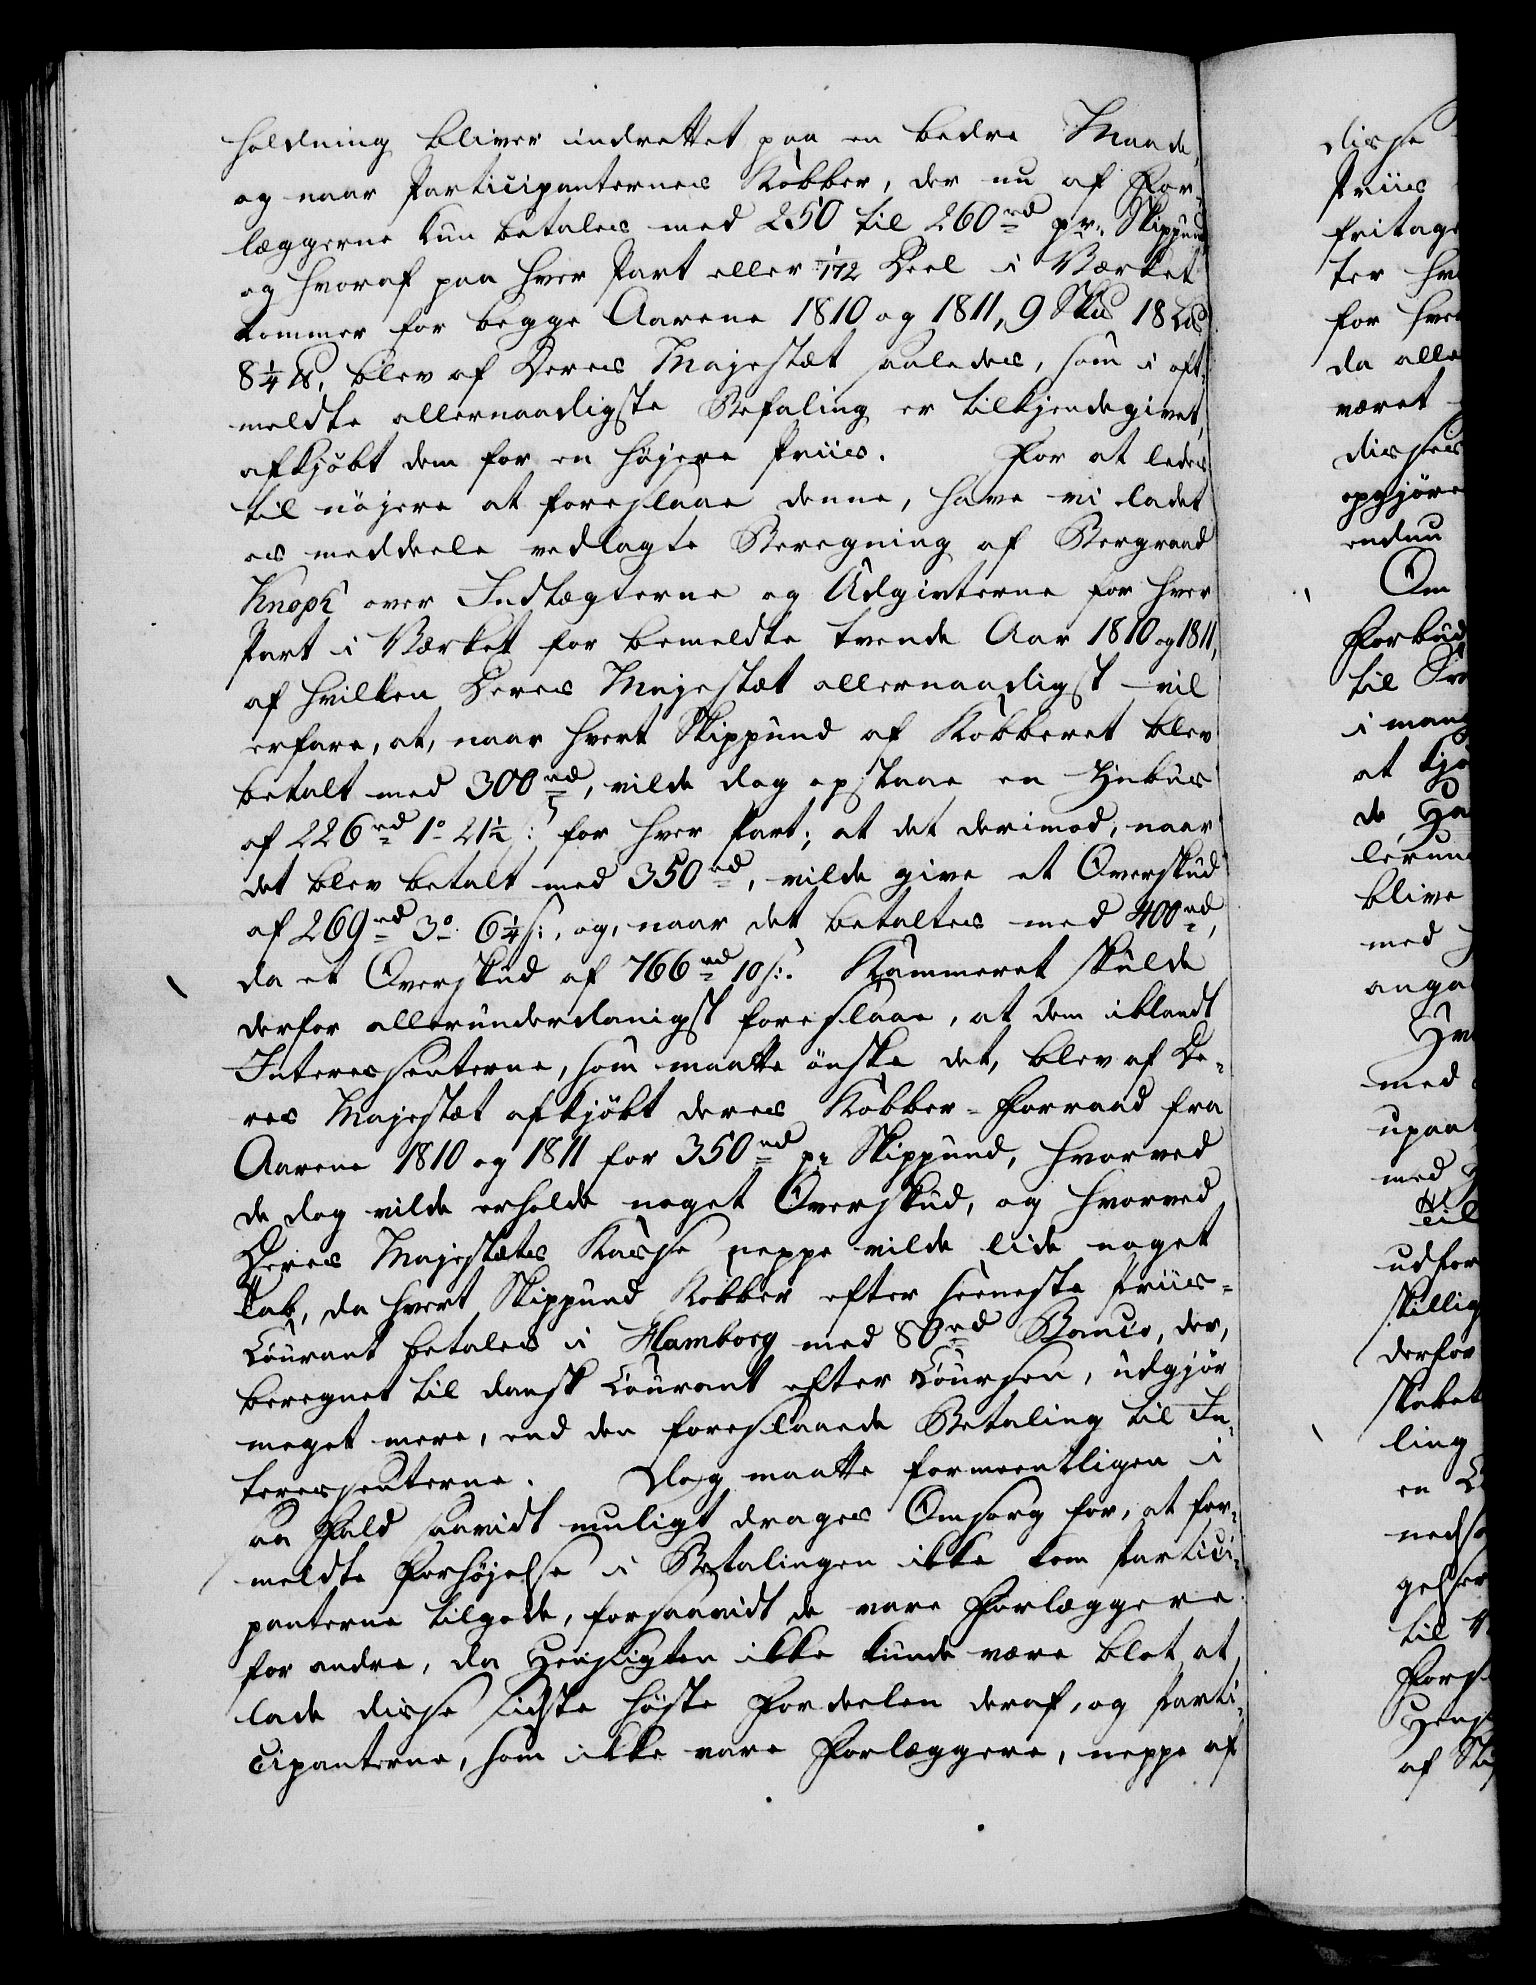 holdning bliver indrettet paa en bedre Maade,
og naar Participanternes Kobber, der nu af For-
læggerne kun betales med 250 til 260 rd pr. Skippund
og hvoraf paa hver Part eller 1/172 Deel i Værket
kommer for begge Aarene 1810 og 1811, 9 Sk℔ 18 L℔
8¼ ℔, blev af Deres Majestæt saaledes, som i oft-
meldte allernaadigste Befaling er tilkjendegivet,
afkjöbt dem for en höjere Priis. For at ledes
til nöjere at foreslaae denne, have vi ladet
os meddeele vedlagte Beregning af Bergraad
Knoph over Indtægterne og Udgivterne for hver
Part i Værket for bemeldte tvende Aar 1810 og 1811,
af hvilken Deres Majestæt allernaadigst vil
erfare, at, naar hvert Skippund af Kobberet blev
betalt med 300 rd, vilde dog opstaae en Zubus
af 226 rd 1 o 21½ s: for hver Part; at det derimod, naar
det blev betalt med 350 rd, vilde give et Overskud
af 269 rd 3 o 6¼ s:, og, naar det betaltes med 400 rd,
da et Overskud af 766 rd 10 s:. Kammeret skulde
derfor allerunderdanigst foreslaae, at dem iblandt
Interessenterne, som maatte önske det, blev af De-
res Majestæt afkjöbt deres Kobber-Forraad fra
Aarene 1810 og 1811 for 350 rd pr Skippund, hvorved
de dog vilde erholde noget Overskud, og hvorved
Deres Majestæts Kasse neppe vilde lide noget
Tab, da hvert Skippund Kobber efter seeneste Priis-
Courant betales i Hamborg med 80 rd Banco, der,
beregnet til dansk Courant efter Coursen, udgjör
meget mere, end den foreslaaede Betaling til In-
teressenterne. Dog maatte formeentligen i
saa Fald saavidt muligt drages Omsorg for, at for-
meldte Forhöjelse i Betalingen ikke kom Partici-
panterne tilgode, forsaavidt de vare Forlæggere
for andre, da Hensigten ikke kunde være blot at
lade disse sidste höste Fordeelen deraf, og Parti-
cipanterne, som ikke vare Forlæggere, neppe af
disse
Priis
fritage
ter
for
da alle
været
disses
opgjöre
endnu
Om
Forbud
til
at
de
blive
med
med
med
Til
derfor
ling
en
til
af